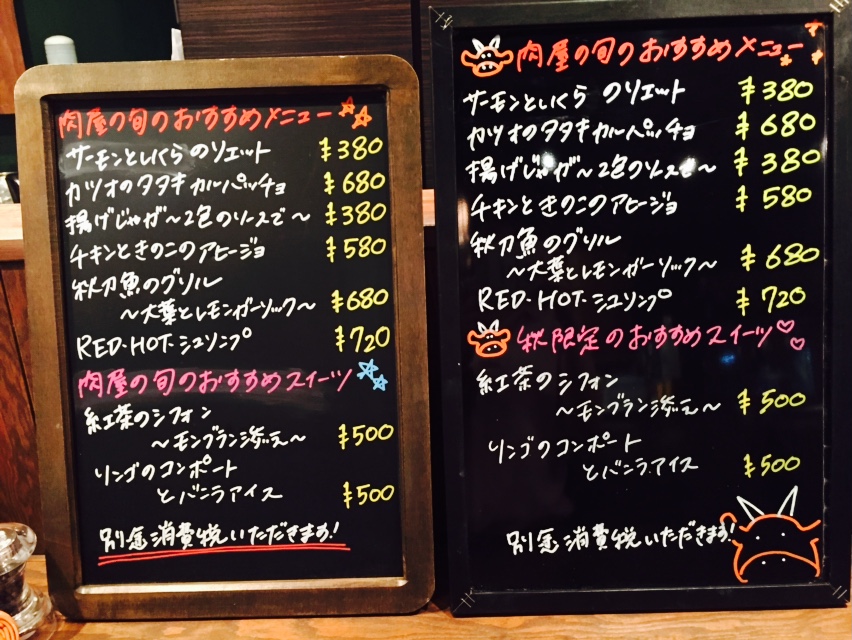 肉屋の旬のおすすめメニュー
サーモンといくらのリエット ¥380
カツオのタタキカルパッチョ ¥680
揚げじゃが〜2色のソースで〜 ¥380
チキンときのこのアヒージョ ¥580
秋刀魚のグリル
〜大葉とレモンガーリック〜 ¥680
RED・HOT・シュリンプ ¥720
肉屋の旬のおすすめスイーツ
紅茶のシフォン
〜モンブラン添え〜 ¥500
リンゴのコンポート
とバニラアイス ¥500
別途消費税いただきます!
肉屋の旬のおすすめメニュー
サーモンといくらのリエット ¥380
カツオのタタキカルパッチョ ¥680
揚げじゃが〜2色のソースで〜 ¥380
チキンときのこのアヒージョ ¥580
秋刀魚のグリル
〜大葉とレモンガーリック〜 ¥680
RED・HOT・シュリンプ ¥720
秋限定のおすすめスイーツ♡♡
紅茶のシフォン
〜モンブラン添え〜 ¥500
リンゴのコンポート
とバニラアイス ¥500
別途消費税いただきます!